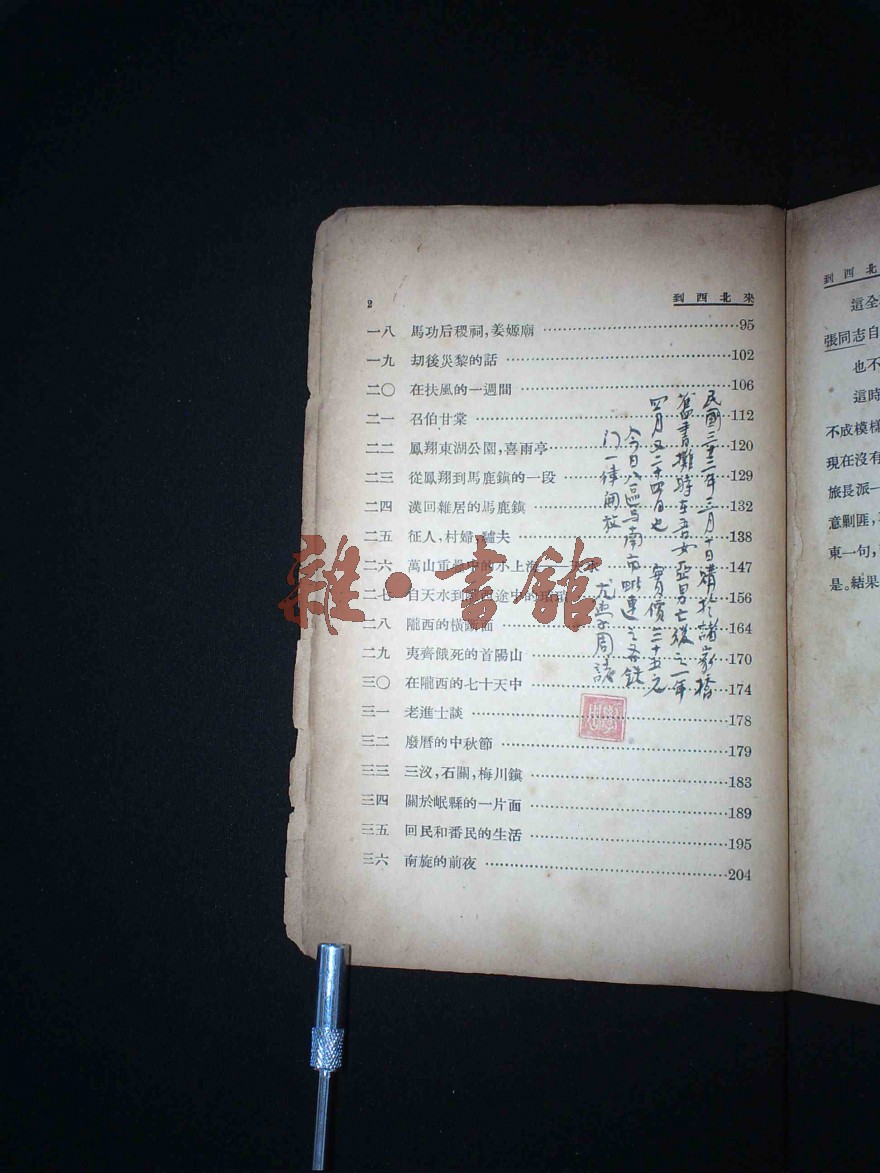 2
到西北來
一八 馬功后稷祠,姜嫄廟 95
一九 劫後災黎的話 102
二〇 在扶風的一週間 106
二一 召伯甘棠 112
二二 鳳翔東湖公園,喜雨亭 120
二三 從鳳翔到馬鹿鎮的一段 129
二四 漢回雜居的馬鹿鎮 132
二五 征人,村婦,驢夫 138
二六 萬山重疊中的小上海——天水 147
二七 自天水到隴西途中的 156
二八 隴西的橫斷面 164
二九 夷齊餓死的首陽山 170
三〇 在隴西的七十天中 174
三一 老進士談 178
三二 廢曆的中秋節 179
三三 三汊,石關,梅川鎮 183
三四 關於岷縣的一片面 189
三五 回民和番民的生活 195
三六 南旋的前夜 204
民國三十二年三月十日購於諸家橋
舊書攤時在吾女亞男亡後之一年
四月又二十四日也 實價三十五元
今日八區與南市毗連之各鐵
门一律開放
周讀
雜·書館
到西北
這全
張同志自
也不
這時
不成模樣
現在沒有
旅長派一
意剿匪,
東一句,
是。結果